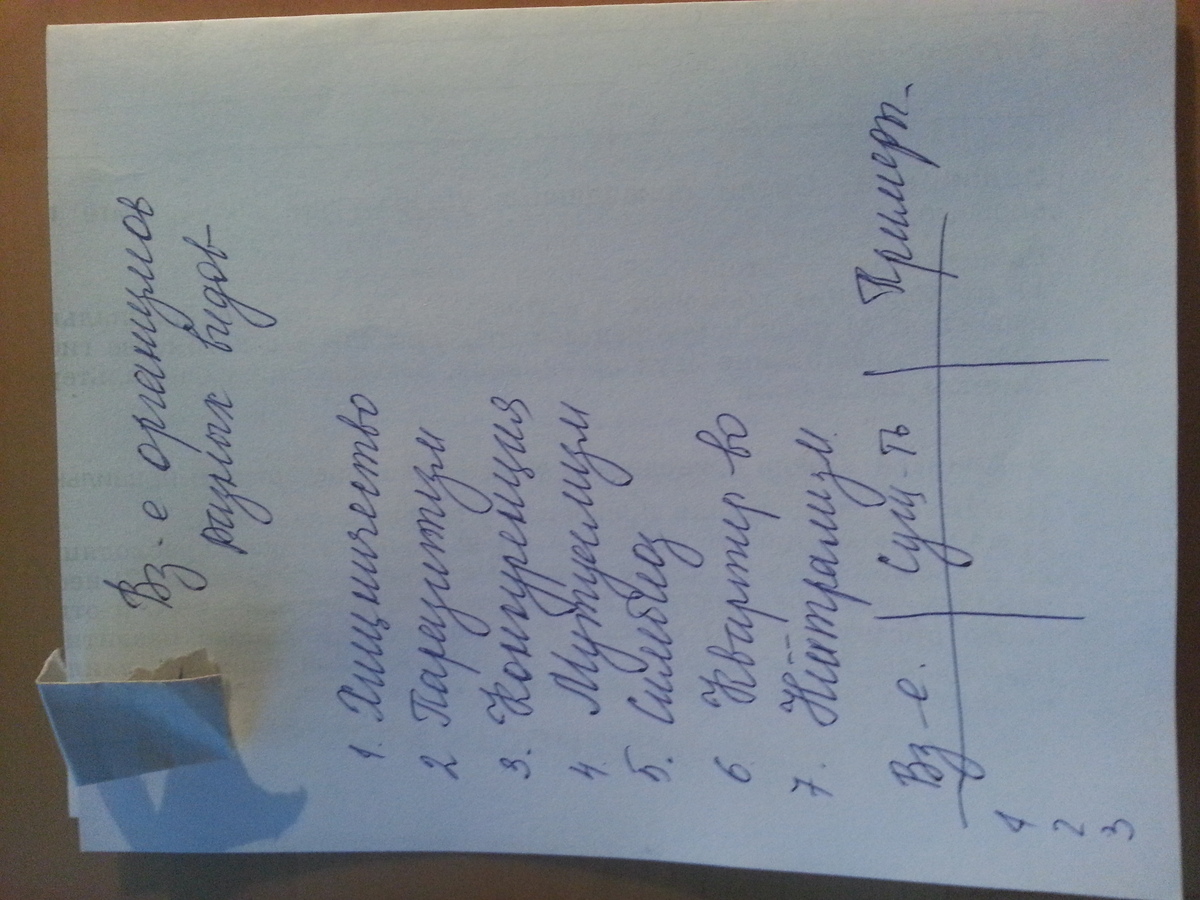 Вз-е организмов
разных видов
1. Хищничество
2 Паразитизм
3. Конкуренция
4. Мутуализм
5. Симбиоз
6 Квартир-во
7. Нейтрализм
Вз-е. Сущ-ть Примеры.
1
2
3